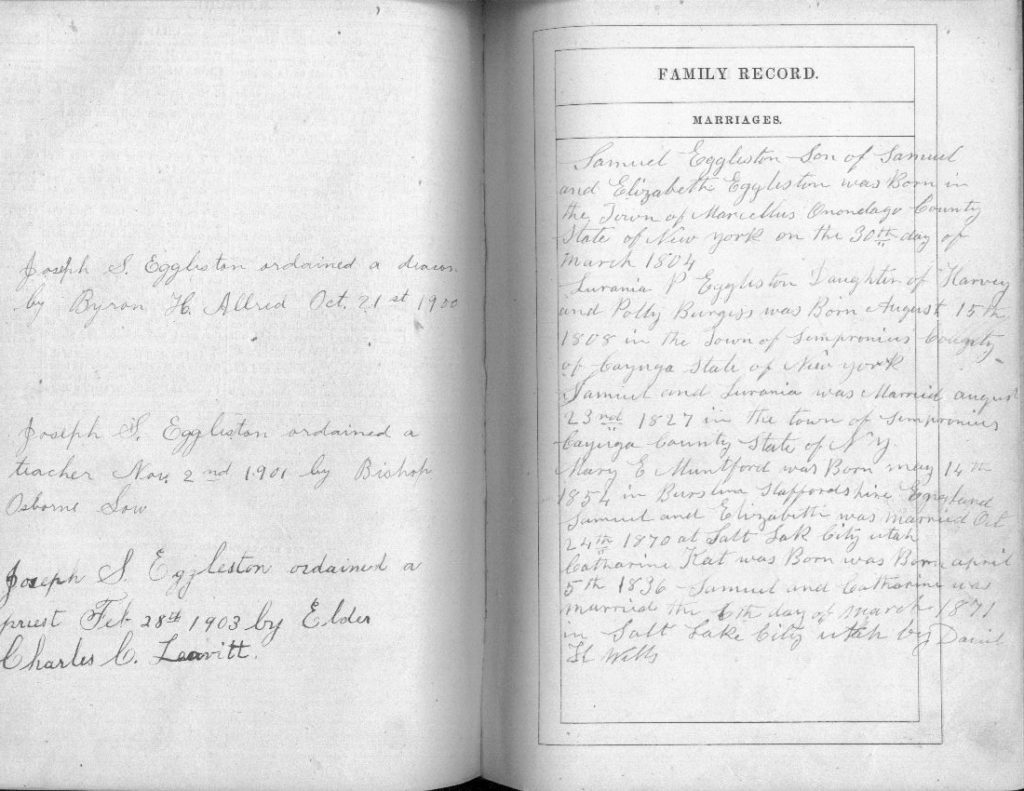 Joseph S. Eggleston ordained a deacon
by Byron H. Allred Oct. 21st 1900
Joseph S. Eggleston ordained a
teacher Nov. 2nd 1901 by Bishop
Osborne Low
Joseph S. Eggleston ordained a
priest Feb 28th 1903 by Elder
Charles C. Leavitt.
FAMILY RECORD.
MARRIAGES.
Samuel Eggleston Son of Samuel
and Elizabeth Eggleston was Born in
the Town of Marcellus Onondago County
State of New york on the 30th day of
March 1804
Lurania P Eggleston Daughter of Harvey
and Polly Burgess was Born August 15th
1808 in the Town of Sempronius County
of Cayuga State of New york
Samuel and Lurania was Married august
23rd 1827 in the town of Sempronius
Cayuga County State of N Y.
Mary E Muntford was Born may 14th
1854 in Burslum Staffordshire England
Samuel and Elizabeth was married Oct
24th 1870 at Salt Lak City utah
Catharine Kat was Born was Born april
5th 1836 Samuel and Catharine was
married the 6th day of March 1871
in Salt Lake City utah by Daniel
H Wells